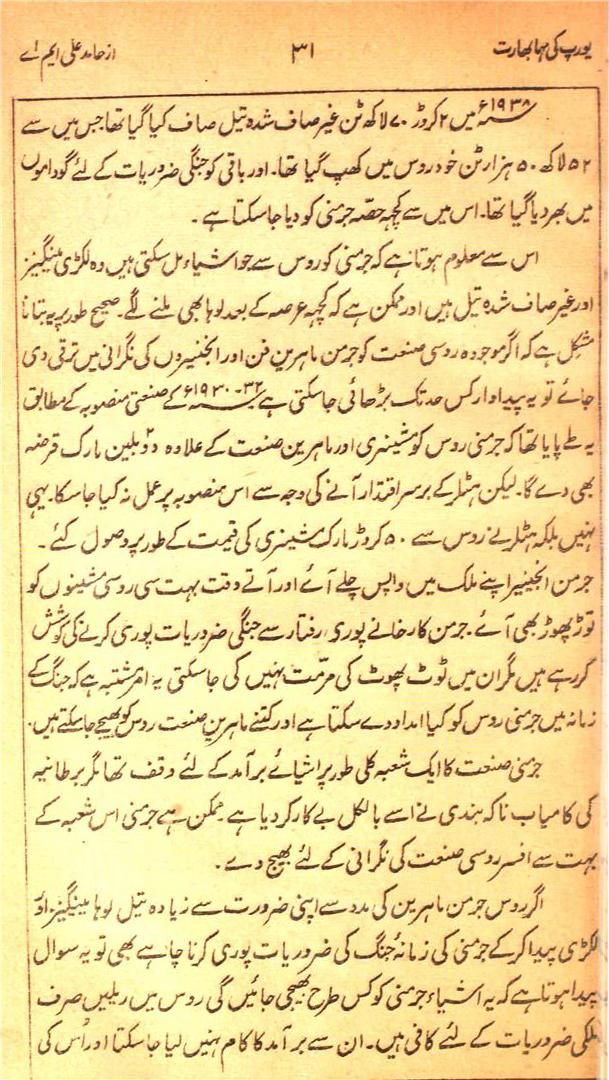 یورپ کی مہابھارت
۳۱
از حامد علی ایم اے
۱۹۳۸ء میں ۲ کروڑ ۷۰ لاکھ ٹن غیر صاف شدہ تیل صاف کیا گیا تھا جس میں سے
۵۲ لاکھ ۵۰ ہزار ٹن خود روس میں کھپ گیا تھا۔ اور باقی کو جنگی ضروریات کے لئے گوداموں
میں بھر دیا گیا تھا۔ اس میں سے کچھ حصہ جرمنی کو دیا جا سکتا ہے۔
اس سے معلوم ہوتا ہے کہ جرمنی کو روس سے جو اشیاء مل سکتی ہیں وہ لکڑی مینگنیز
اور غیر صاف شدہ تیل ہیں اور ممکن ہے کہ کچھ عرصہ کے بعد لوہا بھی ملنے لگے۔ صحیح طور پر یہ بتانا
مشکل ہے کہ اگر موجودہ روسی صنعت کو جرمن ماہرین فن اور انجنیروں کی نگرانی میں ترقی دی
جائے تو یہ پیداوار کس حد تک بڑھائی جا سکتی ہے ۳۲-۱۹۳۰ء کے صنعتی منصوبہ کے مطابق
یہ طے پایا تھا کہ جرمنی روس کو مشینری اور ماہرین صنعت کے علاوہ دو بلین مارک قرضہ
بھی دے گا۔ لیکن ہٹلر کے برسر اقتدار آنے کی وجہ سے اس منصوبہ پر عمل نہ کیا جا سکا۔ یہی
نہیں بلکہ ہٹلر نے روس سے ۵۰ کروڑ مارک مشینری کی قیمت کے طور پر وصول کئے۔
جرمن انجنیر اپنے ملک میں واپس چلے آئے اور آتے وقت بہت سی روسی مشینوں کو
توڑ پھوڑ بھی آئے۔ جرمن کارخانے پوری رفتار سے جنگی ضروریات پوری کرنے کی کوشش
کر رہے ہیں مگر ان میں ٹوٹ پھوٹ کی مرمت نہیں کی جا سکتی یہ امر مشتبہ ہے کہ جنگ کے
زمانہ میں جرمنی روس کو کیا امداد دے سکتا ہے اور کتنے ماہرین صنعت روس کو بھیجے جا سکتے ہیں۔
جرمنی صنعت کا ایک شعبہ کلی طور پر اشیائے برآمد کے لئے وقف تھا مگر برطانیہ
کی کامیاب ناکہ بندی نے اسے بالکل بے کار کر دیا ہے۔ ممکن ہے جرمنی اس شعبہ کے
بہت سے افسر روسی صنعت کی نگرانی کے لئے بھیج دے۔
اگر روس جرمن ماہرین کی مدد سے اپنی ضرورت سے زیادہ تیل لوہا مینگنیز اور
لکڑی پیدا کر کے جرمنی کی زمانۂ جنگ کی ضروریات پوری کرنا چاہے بھی تو یہ سوال
پیدا ہوتا ہے کہ یہ اشیاء جرمنی کو کس طرح بھیجی جائیں گی روس میں ریلیں صرف
ملکی ضروریات کے لئے کافی ہیں۔ ان سے برآمد کا کام نہیں لیا جا سکتا اور اس کی